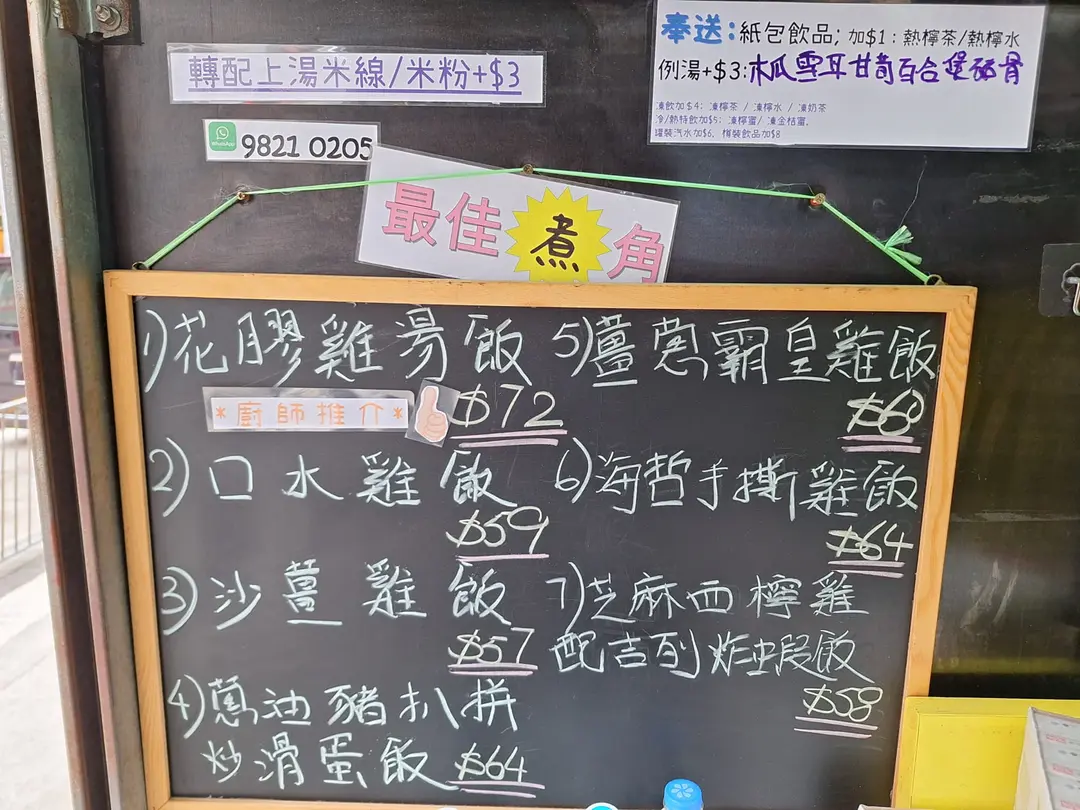 轉配上湯米線/米粉+$3
WhatsApp 9821 0205
奉送:紙包飲品; 加$1:熱檸茶/熱檸水
例湯+$3:木瓜雪耳甘荀百合堡豬骨
凍飲加$4: 凍檸茶 / 凍檸水 / 凍奶茶
冷/熱特飲加$5: 凍檸蜜/ 凍金桔蜜,
罐裝汽水加$6, 樽裝飲品加$8
最佳煮角
1)花膠雞湯飯
*廚師推介*
$72
2)口水雞飯
$59
3)沙薑雞飯
$57
4)蔥油豬扒拼
炒滑蛋飯 $64
5)薑蔥霸皇雞飯
$60
6)海哲手撕雞飯
$64
7)芝麻西檸雞
配吉列炸蝦飯
$58